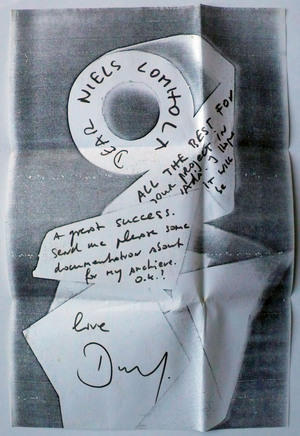 DEAR NIELS LOMHOLT
ALL THE BEST FOR
YOUR PROJECT IN
I hope
IT WILL
be
A great success.
Send me please some
documentation about
for my archieve.
O.K.!
love